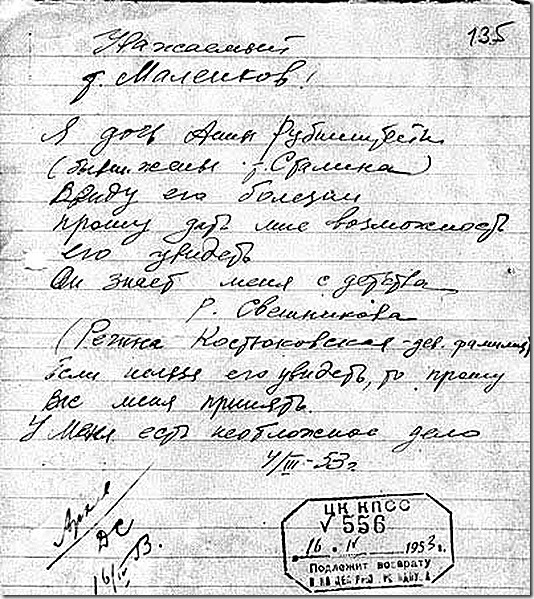 135
Уважаемый
т. Маленков!
Я дочь Анны Рубинштейн
(бывш. жены т. Сталина)
Ввиду его болезни
прошу дать мне возможность
его увидеть
Он знает меня с детства
Р. Свешникова
(Регина Костюковская - дев. фамилия)
Если нельзя его увидеть, то прошу
Вас меня принять.
У меня есть неотложное дело
4/III-53г
Архив
ДС
16/IV 53.
ЦК КПСС
√ 556
16. IV 1953г.
Подлежит возврату